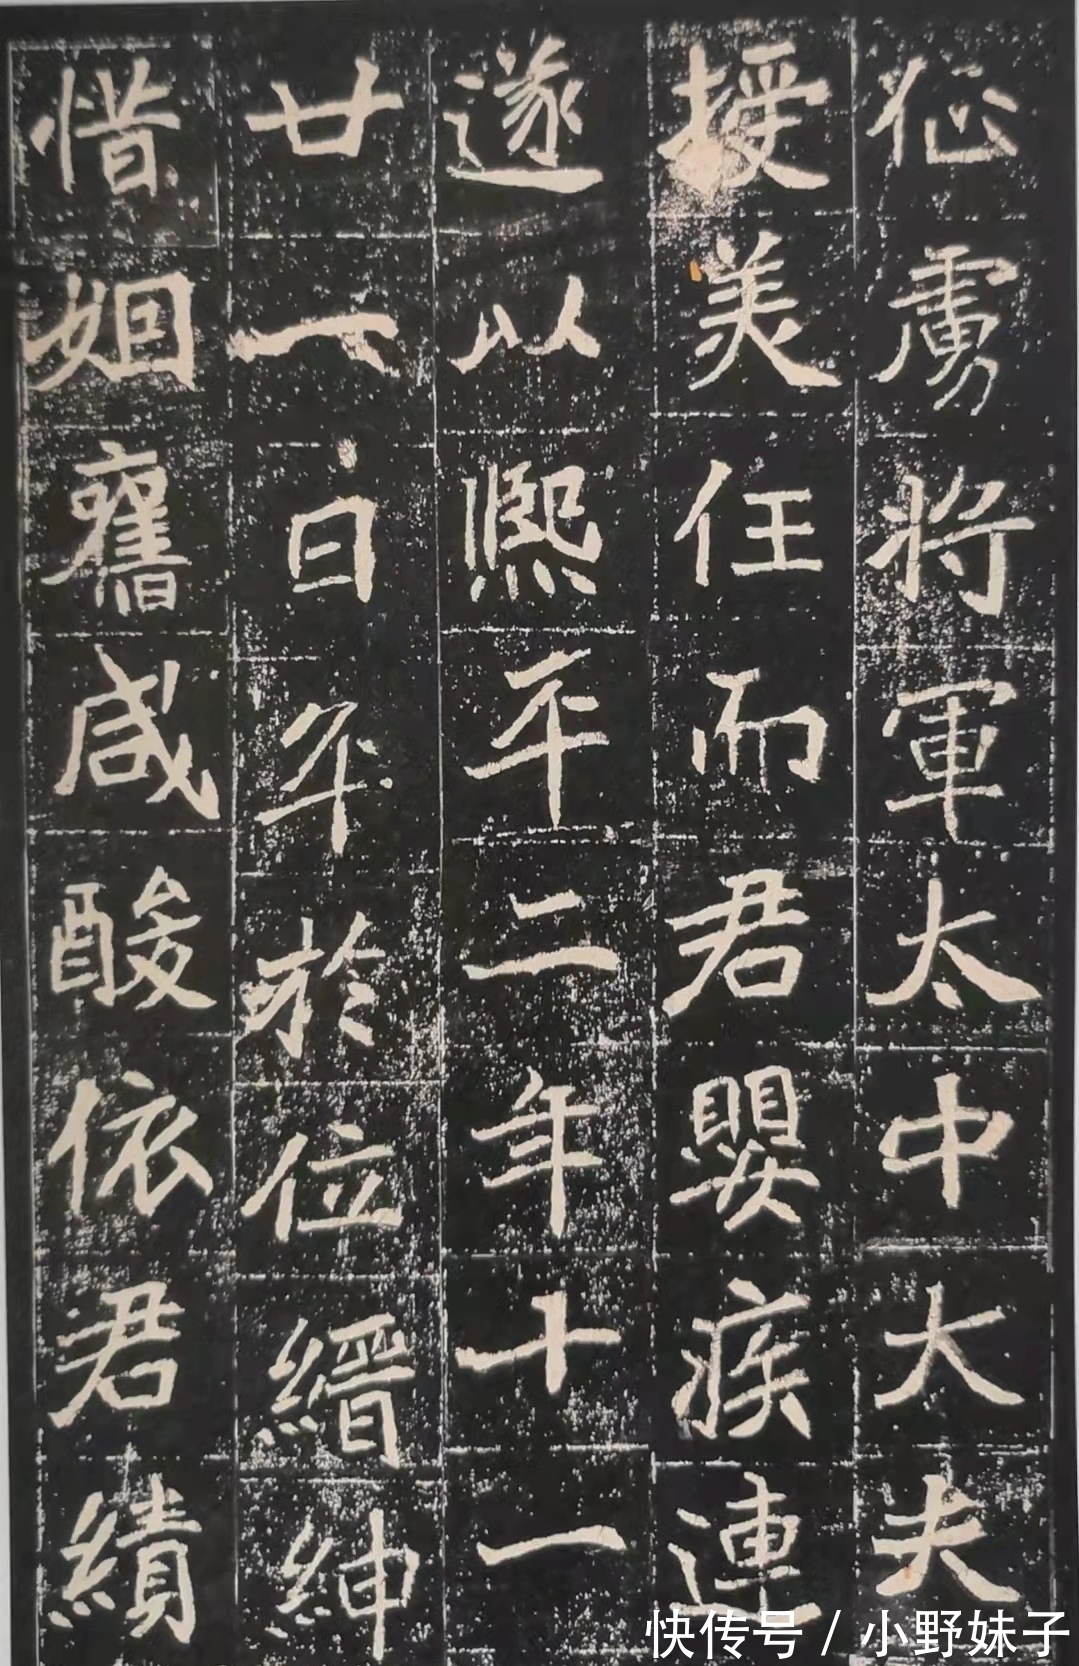 征虜將軍太中大夫
授美任而君嬰疾連
遂以熙平二年十一
廿一日卒於位縉紳
惜姻舊咸酸依君績
快传号 / 小野妹子